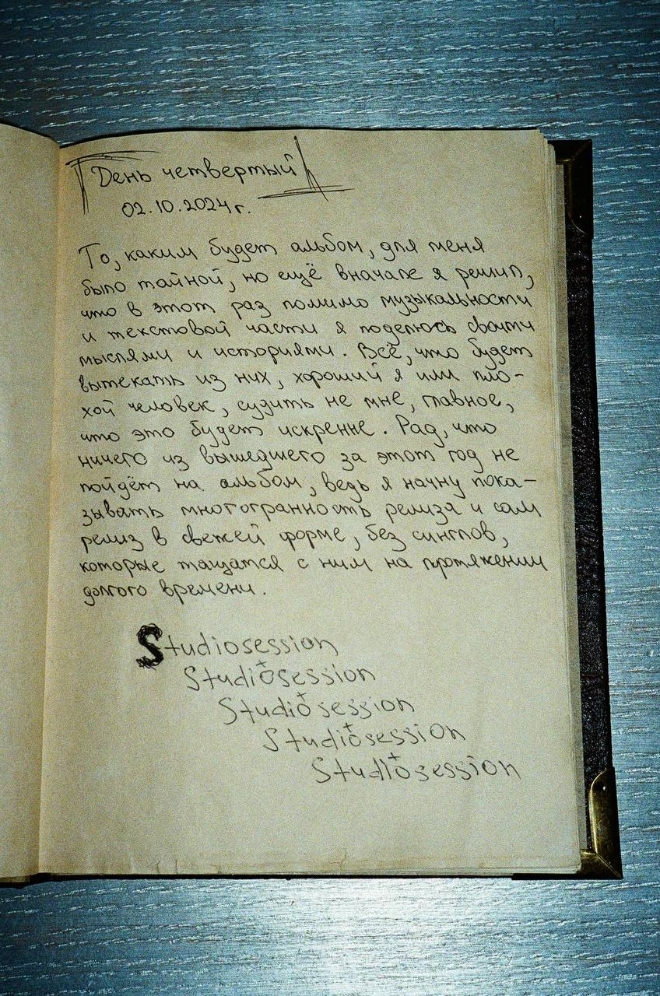 День четвертый
02.10.2024г.
То, каким будет альбом, для меня
было тайной, но ещё вначале я решил,
что в этот раз помимо музыкальности
и текстовой части я поделюсь своими
мыслями и историями. Всё, что будет
вытекать из них, хороший я или пло-
хой человек, судить не мне, главное,
что это будет искренне. Рад, что
ничего из вышедшего за этот год не
пойдёт на альбом, ведь я начну пока-
зывать многогранность релиза и сам
релиз в свежей форме, без синглов,
которые тащатся с ним на протяжении
долгого времени.
Studiosession
Studiosession
Studiosession
Studiosession
Studiosession